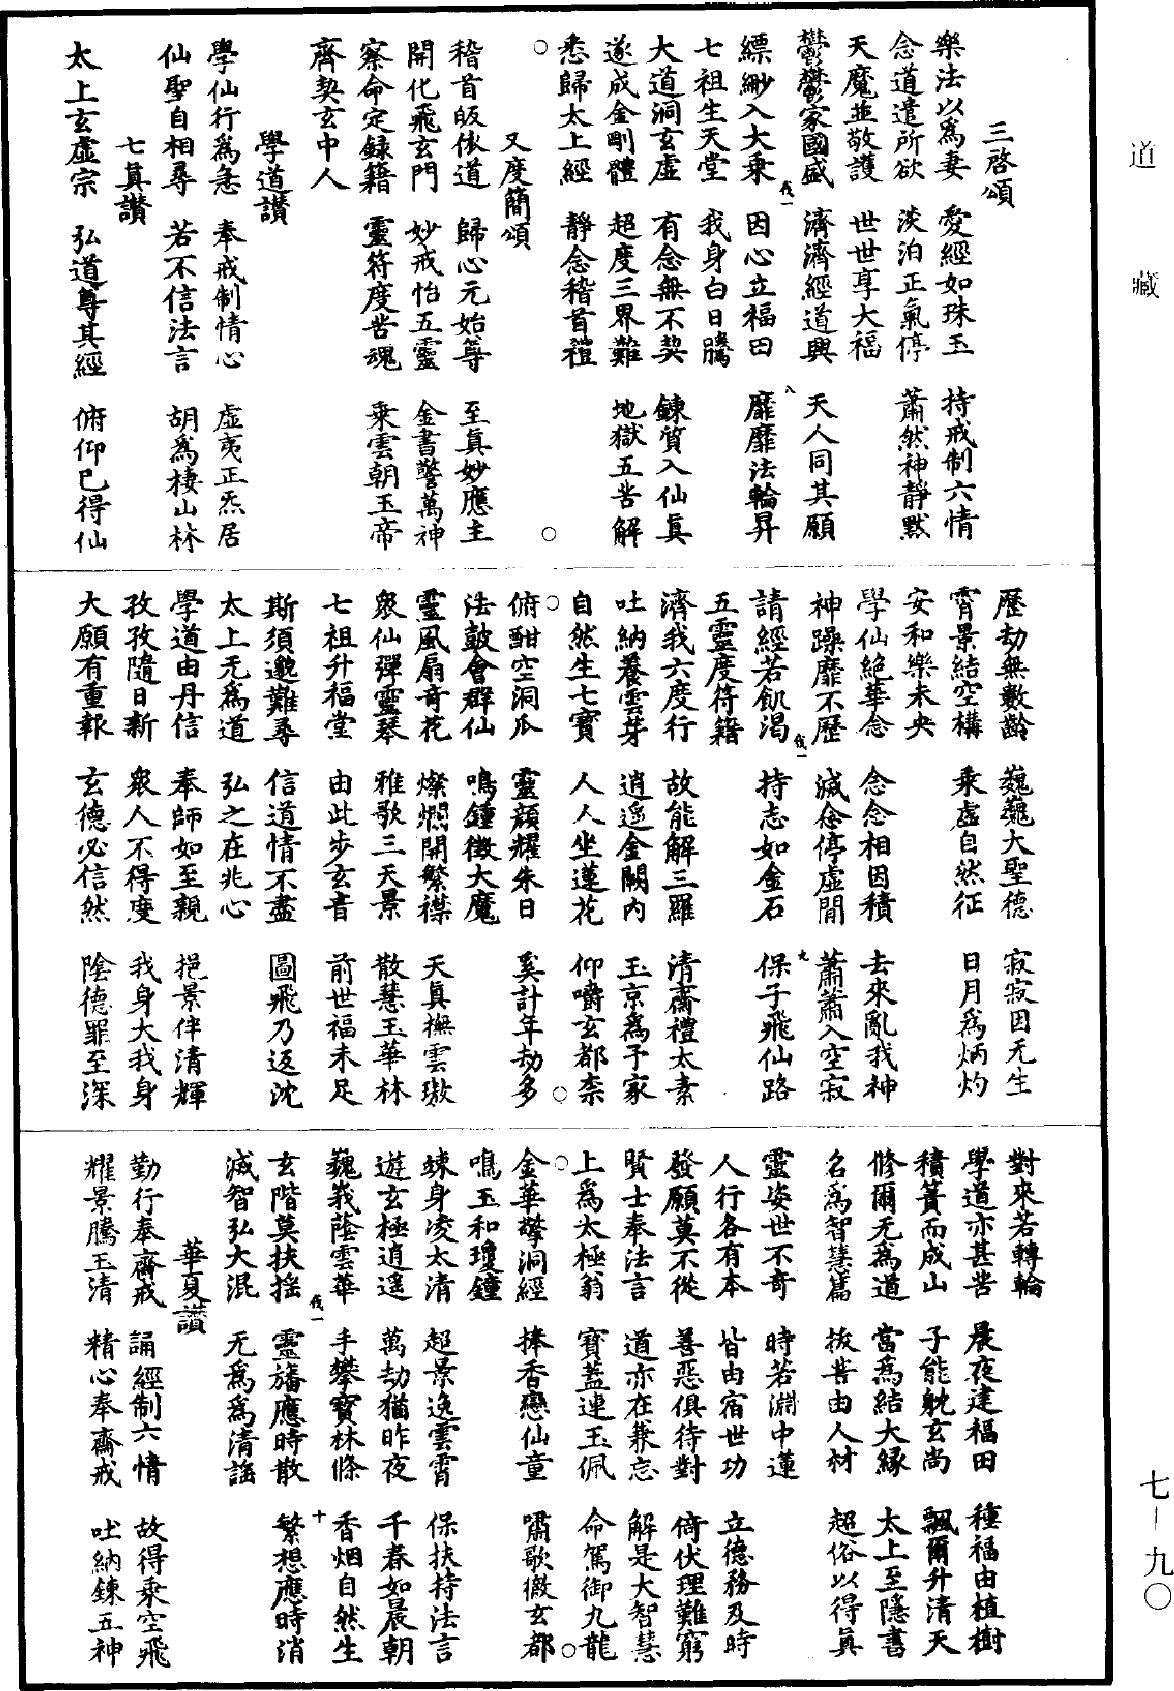 道藏
三啓頌
樂法以爲妻　愛經如珠玉　持戒制六情
念道遣所欲　淡泊正氣停　蕭然神靜默
天魔並敬護　世世享大福
鬱鬱家國盛　濟濟經道興　天人同其願
縹緲入大乘　因心立福田　靡靡法輪昇
七祖生天堂　我身白日騰
大道洞玄虛　有念無不契　鍊質入仙真
遂成金剛體　超度三界難　地獄五苦解
悉歸太上經　靜念稽首禮
又度簡頌
稽首皈依道　歸心元始尊　至真妙應主
開化飛玄門　妙戒怡五靈　金書警萬神
察命定錄籍　靈符度苦魂　乘雲朝玉帝
齊契玄中人
學道讚
學仙行爲急　奉戒制情心　虛夷正炁居
仙聖自相尋　若不信法言　胡爲棲山林
七真讚
太上玄虛宗　弘道尊其經　俯仰已得仙
歷劫無數齡　巍巍大聖德　寂寂因无生
霄景結空構　乘虛自然征　日月爲炳灼
安和樂未央
學仙絕華念　念念相因積　去來亂我神
神躁靡不歷　滅念停虛閒　蕭蕭入空寂
請經若飢渴　持志如金石　保子飛仙路
五靈度符籍
濟我六度行　故能解三羅　清齋禮太素
吐納養雲芽　逍遥金闕內　玉京爲予家
自然生七寶　人人坐蓮花　仰嚼玄都柰
俯酣空洞瓜　靈顏耀朱日　奚計年劫多
法鼓會群仙　鳴鐘徵大魔
靈風扇奇花　燦爛開繁襟　天真撫雲璈
衆仙彈靈琴　雅歌三天景　散慧玉華林
七祖升福堂　由此步玄音　前世福未足
斯須邈難尋　信道情不盡　圖飛乃返沈
太上无爲道　弘之在兆心
學道由丹信　奉師如至親　挹景伴清輝
孜孜隨日新　衆人不得度　我身大我身
大願有重報　玄德必信然　陰德罪至深
對來若轉輪
學道亦甚苦　晨夜建福田　種福由植樹
積簣而成山　子能躭玄尚　飄爾升清天
修爾无爲道　當爲結大緣　太上至隱書
名爲智慧篇　拔苦由人材　超俗以得真
靈姿世不奇　時若淵中蓮
人行各有本　皆由宿世功　立德務及時
發願莫不從　善惡俱待對　倚伏理難窮
賢士奉法言　道亦在兼忘　解是大智慧
上爲太極翁　寶蓋連玉佩　命駕御九龍
金華擎洞經　捧香戀仙童　嘯歌徹玄都
鳴玉和瓊鐘
竦身凌太清　超景逸雲霄　保扶持法言
遊玄極逍遥　萬劫猶昨夜　千春如晨朝
巍峩蔭雲華　手攀寶林條　香烟自然生
玄階莫扶搖　靈旛應時散　繁想應時消
滅智弘大混　无爲爲清謡
華夏讚
勤行奉齋戒　誦經制六情　故得乘空飛
耀景騰玉清　精心奉齋戒　吐納鍊五神
七－九〇